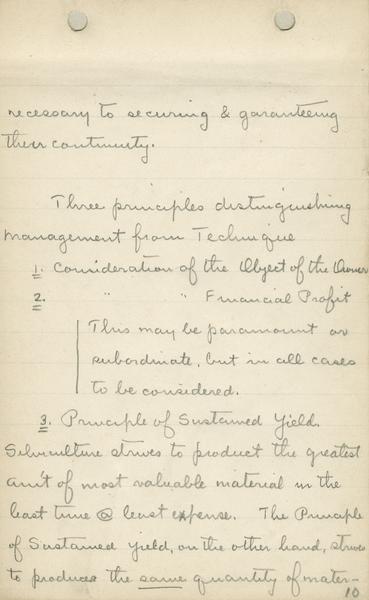 necessary to securing & garanteeing
their continuity.
Three principles distinguishing
management from Technique
1. Consideration of the Object of the Owner
2. " " Financial Profit
This may be paramount or
subordinate, but in all cases
to be considered.
3. Principle of Sustained Yield.
Silviculture strives to product the greatest
am't of most valuable material in the
least time @ least expense. The Principle
of Sustained Yield, on the other hand, strives
to produce the same quantity of mater-
10